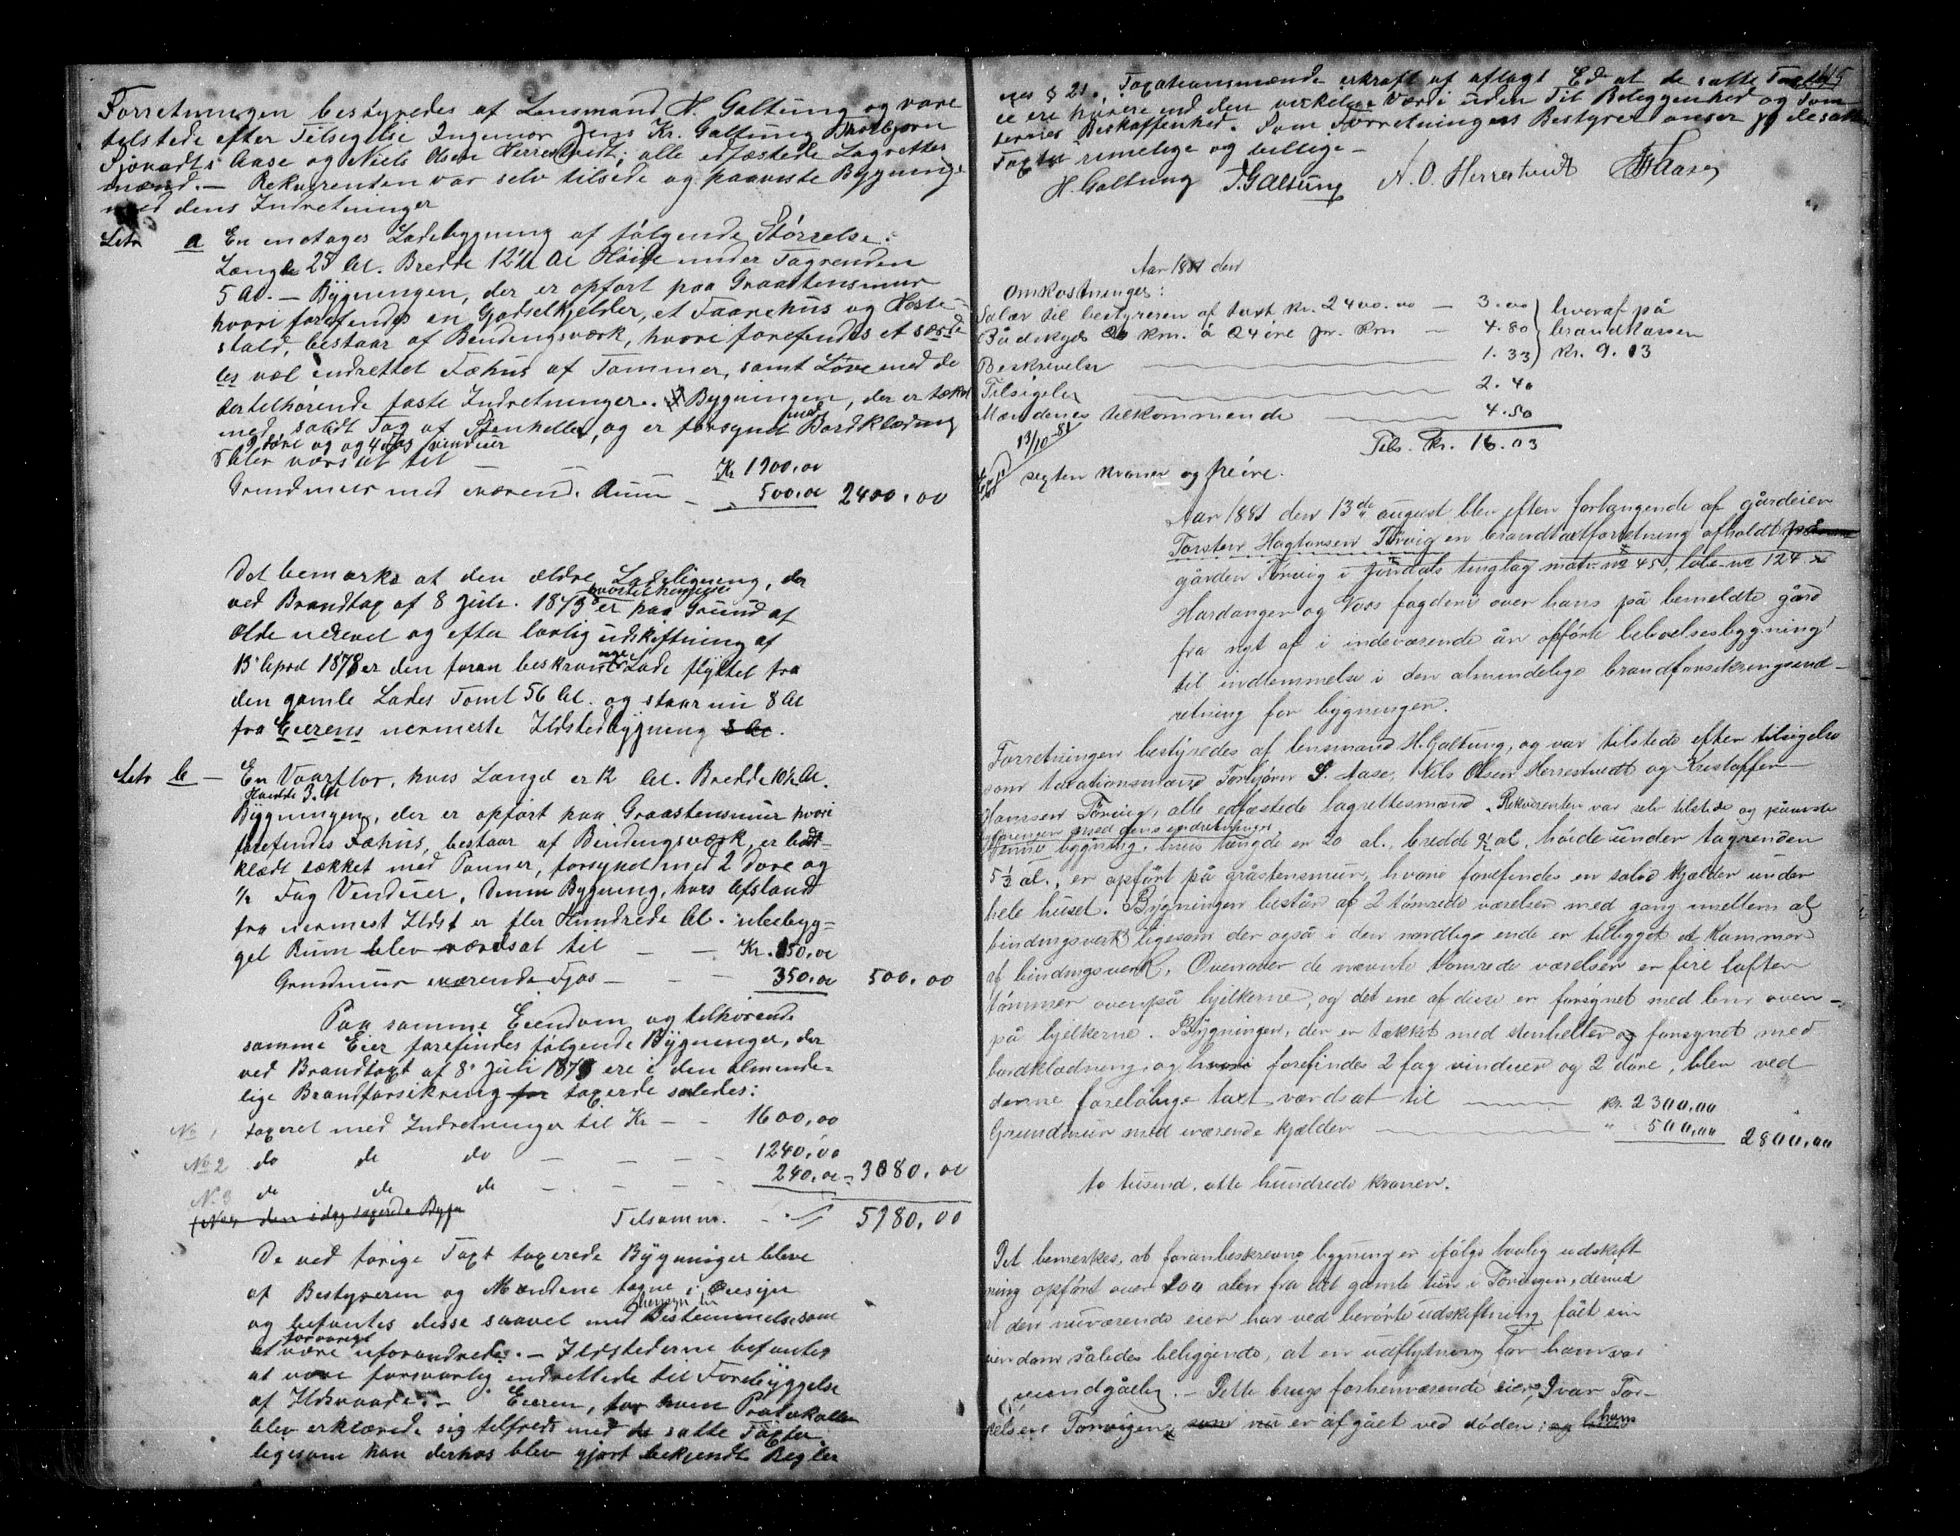 Forretningen bestyredes af Lensmand H. Galtung og vare
tilstede efter Tilsigelse Ingeniør Jens Kr. Galtung Thorbjørn
Sjovadts Aase og Niels Olsen Herrestvedt, alle edfæstede Lagrettes
mænd. — Rekvirenten var selv tilstede og paaviste Bygninge
med dens Indretninger
Litr a En enetages Ladebygning af følgende Størrelse:
Længde 25 Al. Bredde 12½ Al Høide under Tagrenden
5 Al. — Bygningen, der er opført paa Graastensmur
hvori forefindes en Gjødselkjelder, et Faarehus og Heste-
stald, bestaar af Bendingsværk, hvori forefindes et særde
les vel indrettet Fæhus af Tømmer, samt Løve med de
dertilhørende faste Indretninger. Bygningen, der er tækket
med solidt Tag af Stenheller, og er forsynet med Bordklædning
9 døre og 4 Fag vinduer
blev værdsat til — — Kr 1900,00
Grundmur med værende Rum — 500,00 2400,00
Det bemærkes at den ældre Ladebygning, der
ved Brandtaxt af 8 Juli 1873 er paa Grund af
Ælde nedrevet og efter lovlig udskiftning af
15 April 1878 er den foran beskrevne nye Lade flyttet fra
den gamle Lades Tomt 56 Al. og staar nu 8 Al
fra Eierens nermeste Ildstedbygning 8 Al.
Litr b — En Vaarflor, hvis Længd er 12 Al. Bredde 10½ Al.
Høidde 3 Al
Bygningen, der er opført paa Graastensmur hvori
forefindes Fæhus, bestaar af Bindingsværk, er bord-
klædt tækket med Panner, forsynet med 2 Døre og
½ Fag Vinduer, Denne Bygning, hvis Afstand
fra nermest Ildst er fler Hundrede Al. ubebyg-
get Rum blev værdsat til — — Kr. 150,00
Grundmur værende Fjøs — — 350,00 500,00
Paa samme Eiendom og tilhørende
samme Eier forefindes følgende Bygninger, der
ved Brandtaxt af 8 Juli 1873 ere i den alminde-
lige Brandforsikring for taxerede saaledes:
No 1 taxeret med Indretninger til Kr — — 1600,00
No 2 do do do — — — — 1240,00
No 3 do do do — — — — 240,00 = 3080,00
den idag taxerede Bygn
Tilsamm. — 5980,00
De ved forige Taxt taxerede Bygninger bleve
af Bestyreren og Mændene tagne i Øiesyn
og befantes disse saavel med Hensyn til Bestemmelse som
forøvrigt
at være uforandrede. — Ildstederne befantes
at være forsvarlig indrettede til Forebyggelse
af Ildsvaade. — Eieren, for hvem Protokollen
blev erklærede sig tilfreds med de satte Taxter
ligesom han derhos blev gjort bekjendt Regler
nes § 21. Taxationsmændene erkraft af aflagt Ed at de satte Taxter 115
ei ere høiere end den virkelige Værdi uden Til Beliggenhed og Tom
ternes Beskaffenhed. Som Forretningens Bestyrer anser jeg de satte
Taxter rimelige og billige —
H. Galtung J. Galtung N. O. Herrestvedt Aase
Aar 1881 den
Omkostninger:
Salær til bestyreren af taxt kr. 2400.00 — 3.00 } hvoraf på
Bådskyds 20 km. à 24 øre pr. km — 4.80 } brandkassen
Beskrivelse 1.33 } kr. 9.13
Tilsigelse 2.40
Mændenes tilkommende 4.50
13/10-81 Tils. kr. 16.03
segsten kroner og tre øre.
Aar 1881 den 13de august blev efter forlangende af gårdeier
Torsten Hagtorsen Tørvig en brandtaxtforretning afholdt på
gården Tørvig i Jondals tinglag matr no 45, løbe no 124
Hardanger og Vos fogderi over hans på bemeldte gård
fra nyt af i indeværende år opførte beboelsesbygning
til indlemmelse i den almindelige brandforsikringsind-
retning for bygninger.
Forretningen bestyredes af lensmand H. Galtung, og var tilstede efter tilsigelse
som taxationsmænd Torbjørn S. Aase, Niels Olsen Herrestvedt og Kristoffer
Hansen Tørvig, alle edfæstede lagrettesmænd. Rekvirenten var selv tilstede og påviste
bygningen med dens indretninger.
Denne bygning, hvis længde er 20 al., bredde 9½ al., høide under tagrenden
5½ al., er opført på gråstensmur, hvori forefindes en solid kjælder under
hele huset. Bygningen består af 2 tømrede værelser med gang imellem af
bindingsverk ligesom der også i den nordlige ende er tilbygget et kammer
af bindingsverk. Ovenover de nævnte tømrede værelser er fire lofter
tømmer ovenpå bjelkerne, og det ene af disse er forsynet med brur oven-
på bjelkerne. Bygningen, der er tækket med stenheller og forsynet med
bordklædning, og hvori forefindes 2 fag vinduer og 2 døre, blev ved
denne foreløbige taxt værdsat til — kr. 2300,00
Grundmur med værende kjælder — " 500,00 2800,00
to tusend, otte hundrede kroner.
Det bemerkes, at foranbeskrevne bygning er ifølge lovlig udskift-
ning opført over 200 alen fra det gamle tun i Tørvigen, derved
at den nuværende eier har ved berørte udskiftning fået sin
eiendom således beliggende, at en udflytning for ham var
uundgåelig. — Dette brugs forhenværende eier, Ivar Tor-
kelsen Tørvigen som nu er afgået ved døden; og hans